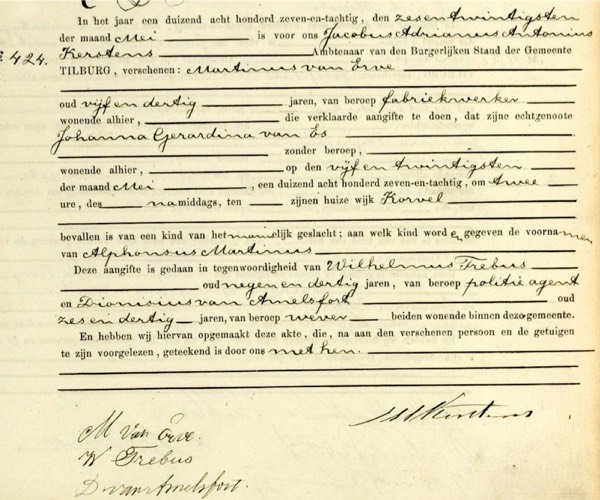 In het jaar een duizend acht honderd zeven-en-tachtig, den zesentwintigsten
der maand Mei is voor ons Jacobus Adrianus Antonius
424. Kerstens Ambtenaar van den Burgerlijken Stand der Gemeente
TILBURG, verschenen: Martinus van Erve
oud vijf en dertig jaren, van beroep fabriekwerker
wonende alhier, die verklaarde aangifte te doen, dat zijne echtgenoote
Johanna Gerardina van Es
zonder beroep,
wonende alhier, op den vijf en twintigsten
der maand Mei, een duizend acht honderd zeven-en-tachtig, om twee
ure, des namiddags, ten zijnen huize wijk Korvel
bevallen is van een kind van het mannelijk geslacht; aan welk kind word en gegeven de voornamen
van Alphonsus Martinus
Deze aangifte is gedaan in tegenwoordigheid van Wilhelmus Trebus
oud negen en dertig jaren, van beroep politie agent
en Dionisius van Amelsfort oud
zes en dertig jaren, van beroep wever beiden wonende binnen deze gemeente.
En hebben wij hiervan opgemaakt deze akte, die, na aan den verschenen persoon en de getuigen
te zijn voorgelezen, geteekend is door ons met hen.
M van Erve.
W Trebus
D. van Amelsfort.